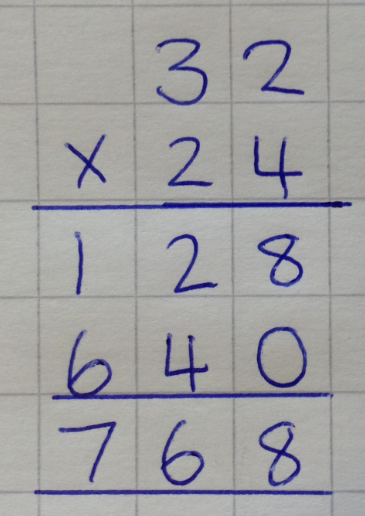 32
× 24
128
640
768